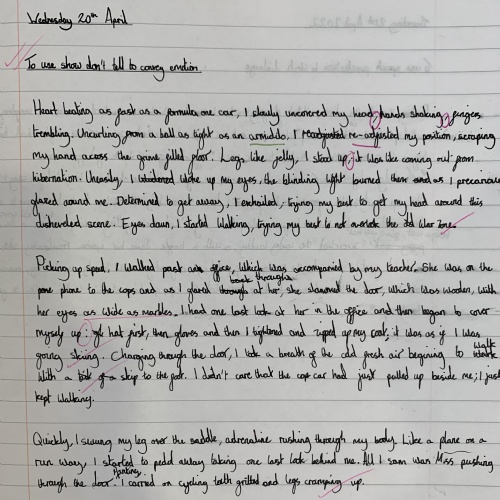 Wednesday 20th April
To use show don't tell to convey emotion
Heart beating as fast as a formula one car, I slowly uncovered my head; hands shaking; fingers
trembling. Uncurling from a ball as tight as an armidlo, I re-adjusted my position, scraping
my hand across the grime filled floor. Legs like jelly, I stood up; it was like coming out from
hibernation. Uneasily, I woke up my eyes, the blinding light burned them as I precariously
glazed around me. Determined to get away, I enchailed, trying my best to get my head around this
dishevelled scene. Eyes down, I started walking, trying my best to not overlook the old war zone.
Picking up speed, I walked past an office, which was accompanied by my teacher. She was on the
phone to the cops and as I glared back through at her, she slammed the door, which was wooden, with
her eyes as wide as marbles. I had one last look at her in the office and then began to cover
myself up: hat first, then gloves and then I tightened and zipped up my coat; it was as if I was
going skiing. Charging through the door, I took a breath of the cold fresh air beginning to walk
with a bit of a skip to the foot. I didn't care that the cop car had just pulled up beside me; I just
kept walking.
Quickly, I swung my leg over the saddle, adrenaline rushing through my body. Like a plane on a
run way, I started to pedal away taking one last look behind me. All I saw was Miss pushing
through the door. Panting, I carried on cycling teeth gritted and legs cramping up.